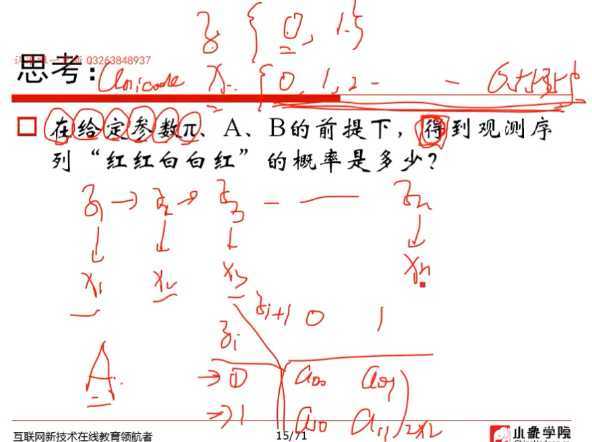 z { 0, 1 }
03263848937
思考:
Unicode x { 0, 1, 2 - - 65535 }
□ 在给定参数π、A、B的前提下，得到观测序
列“红红白白红”的概率是多少？
z1 → z2 → z3 - — zn
x1 x2 x3 xn
zi+1 0 1
zi
A → 0 a00 a01
→ 1 a10 a11 2x2
互联网新技术在线教育领航者
15/71
小象学院